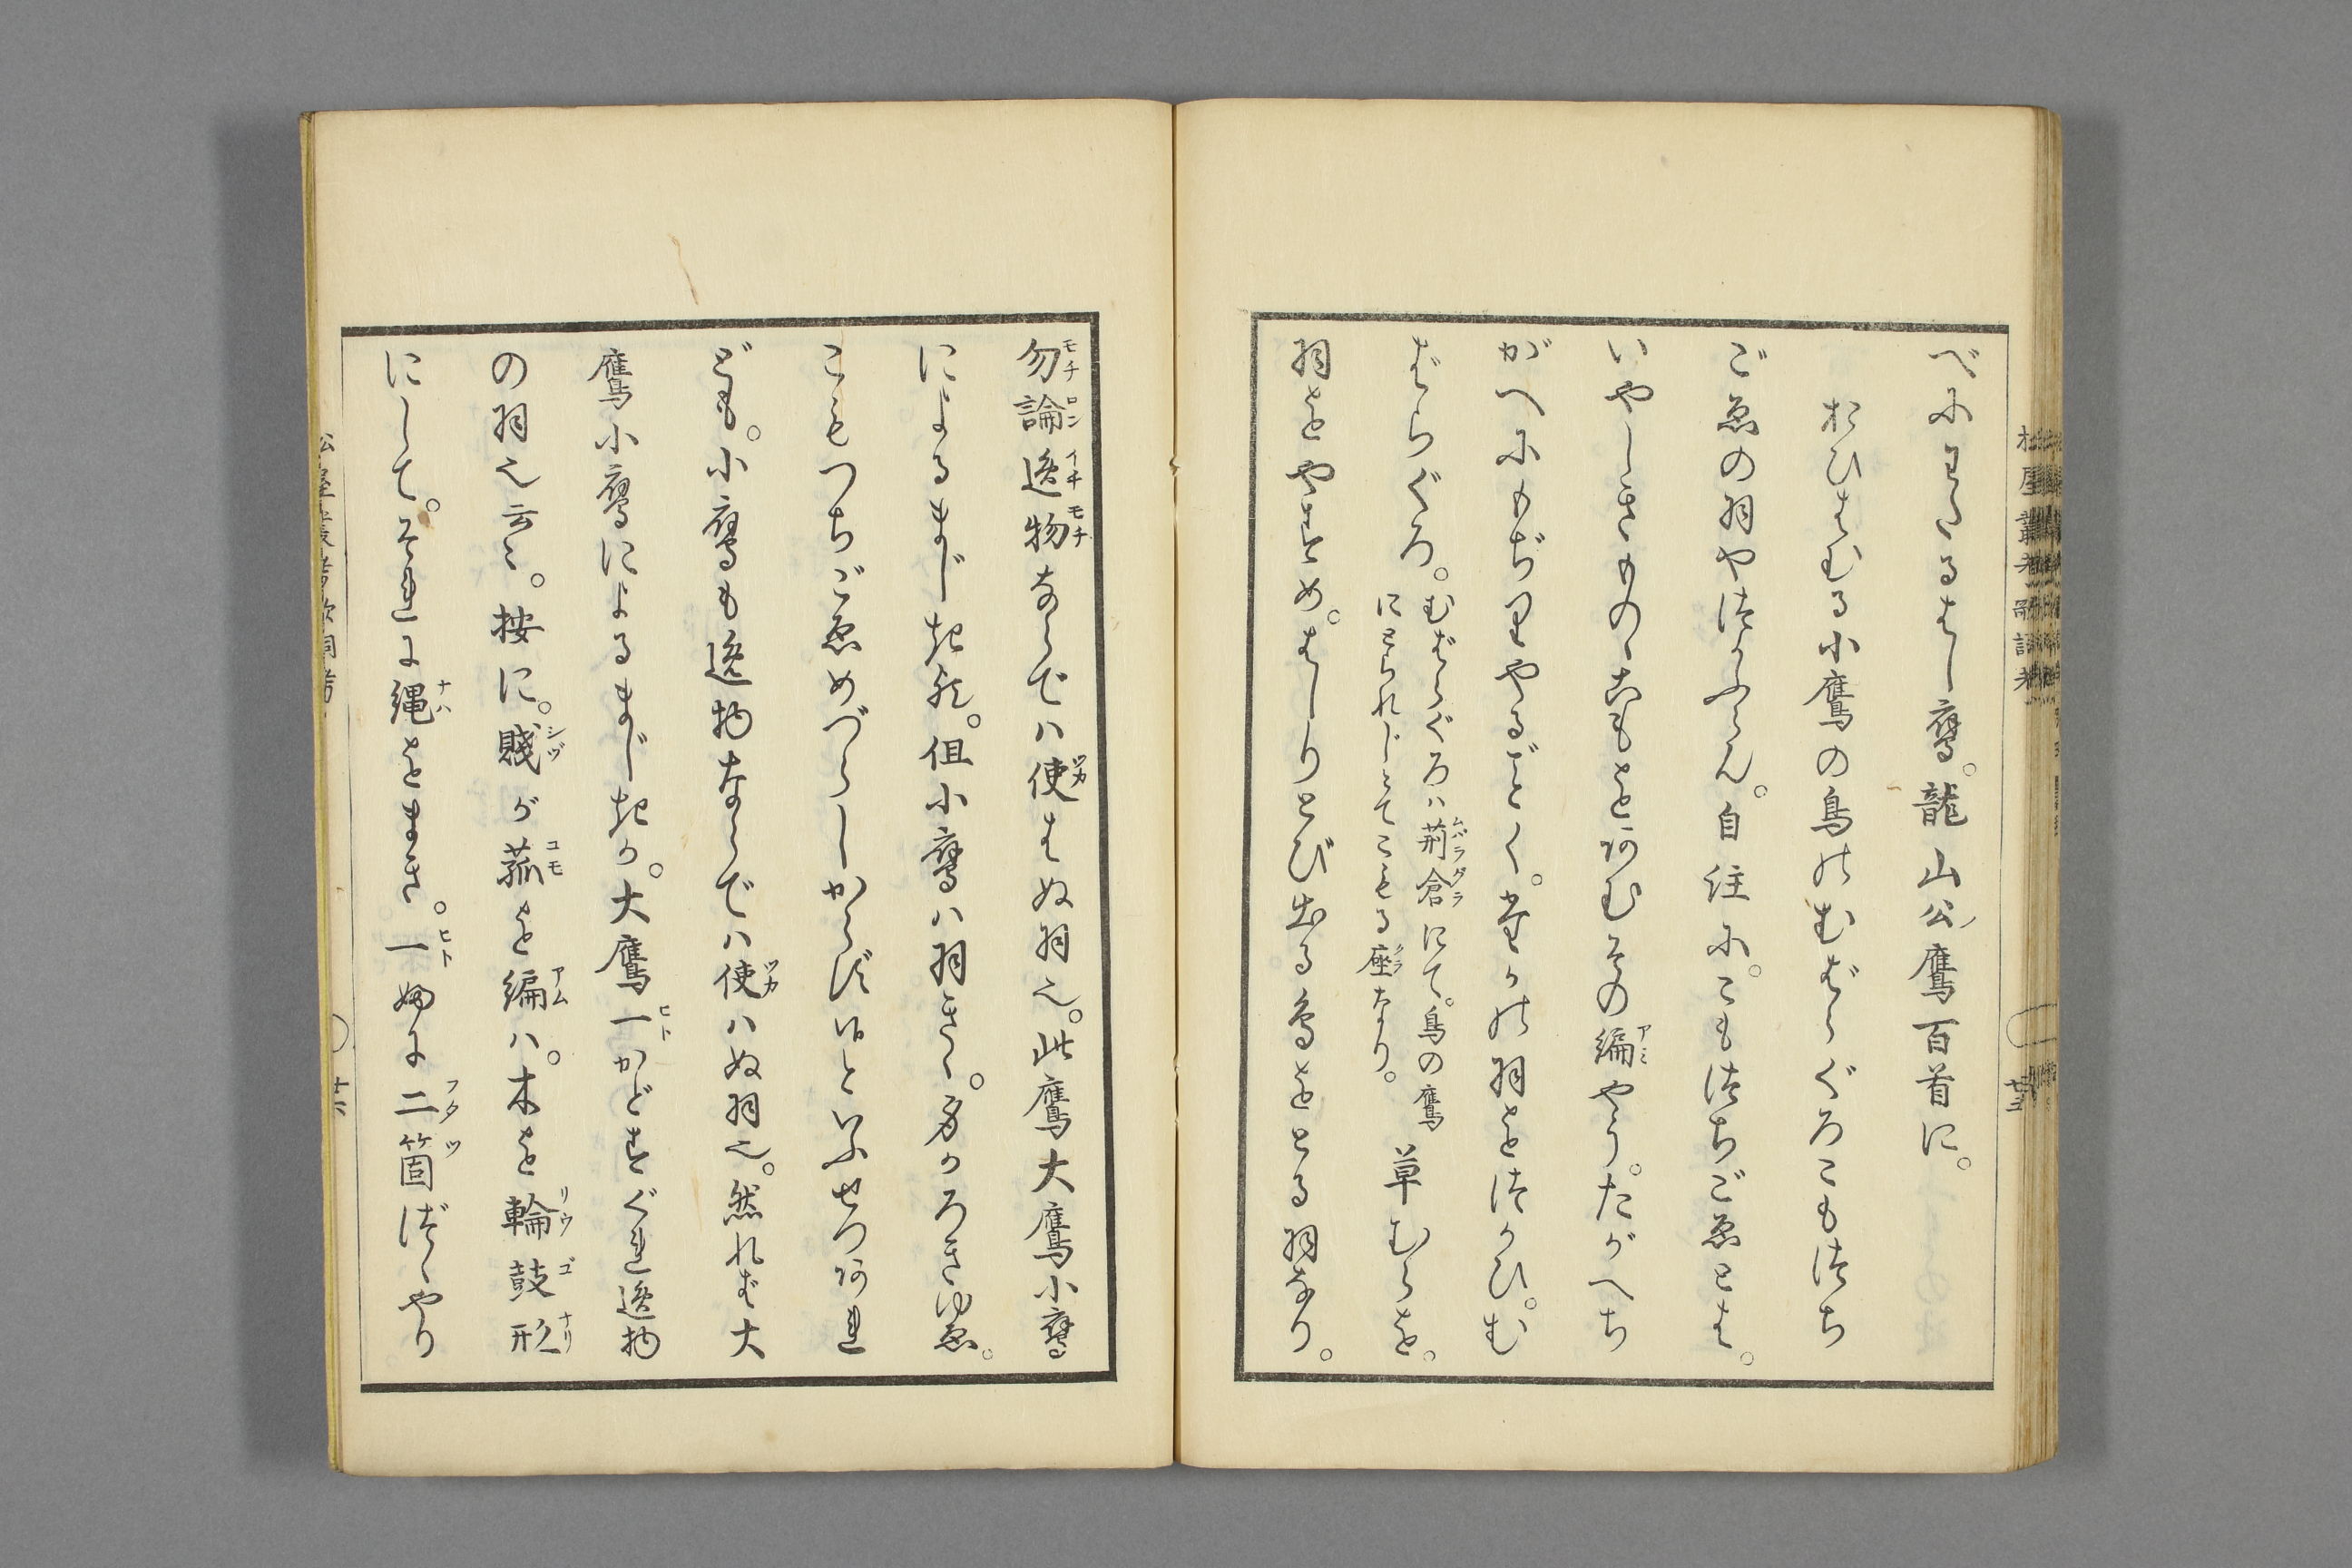 べにすゝるはし鷹。龍山公ノ鷹百首に。
おひはむる小鷹の鳥のむばらぐろこもつち
ごゑの羽やつかふらん。自注に。こもつちごゑとは。
いやしきものゝこもをあむその編やう。たがへち
がへにもぢりやるごとく。たかの羽をつかひ。む
ばらぐろ。むばらぐろハ荊倉にて。鳥の鷹
にとられじとてこもる座なり。草むらを。
羽をやすめ。はしりとび出る鳥をとる羽なり。
勿論逸物ならでハ使はぬ羽也。此鷹大鷹小鷹
によるまじき歟。但小鷹ハ羽きゝ。身かろきゆゑ。
こもつちごゑめづらしからずといふせつあれ
ども。小鷹も逸物ならでハ使ハぬ羽也。然れば大
鷹小鷹によるまじきか。大鷹一かどすぐれ逸物
の羽也云々。按に。賤が菰を編ハ。木を輪鼓形
にして。それに縄をまき。一婦に二箇づゝやり
廿六